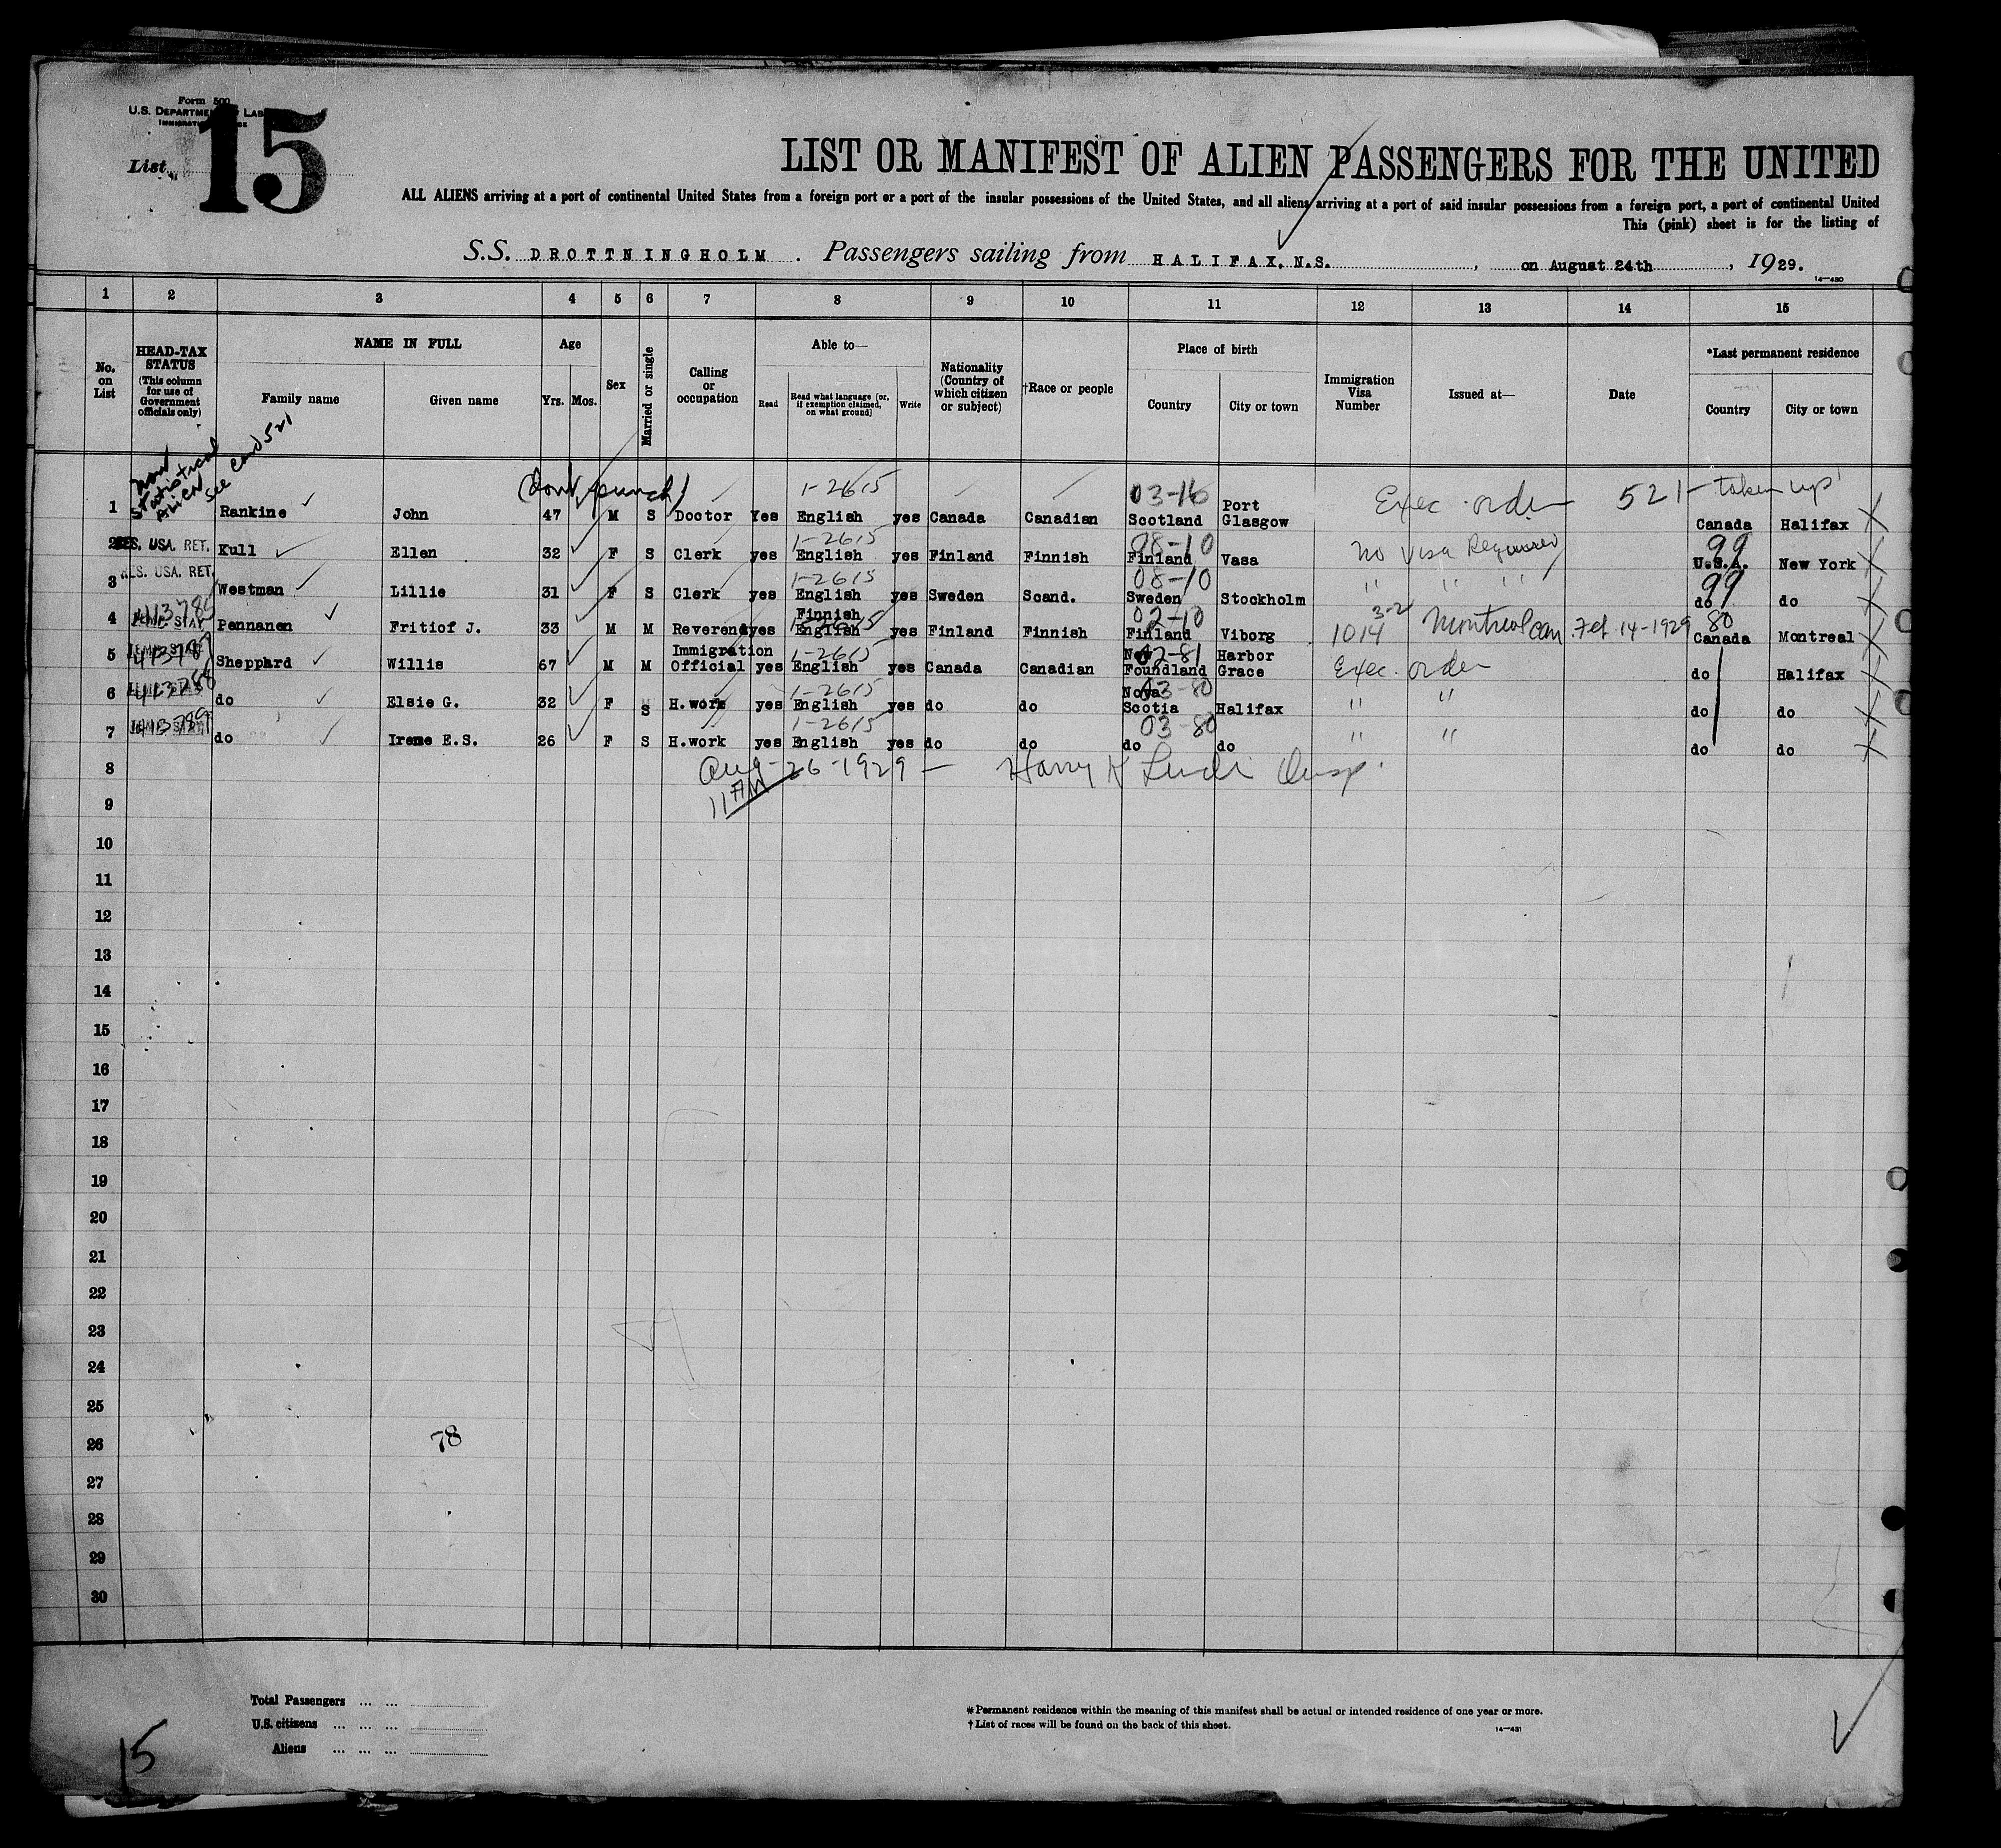 Form 500
U.S. DEPARTMENT LAB
IMMIGRAT
List
15
LIST OR MANIFEST OF ALIEN PASSENGERS FOR THE UNITED
ALL ALIENS arriving at a port of continental United States from a foreign port or a port of the insular possessions of the United States, and all aliens arriving at a port of said insular possessions from a foreign port, a port of continental United
This (pink) sheet is for the listing of
S.S. DROTTNINGHOLM . Passengers sailing from HALIFAX, N.S. , on August 24th , 1929.
14—430
1 2 3 4 5 6 7 8 9 10 11 12 13 14 15
No. on List
HEAD-TAX STATUS (This column for use of Government officials only)
NAME IN FULL
Family name Given name
Age
Yrs. Mos.
Sex
Married or single
Calling or occupation
Able to—
Read Read what language [or, if exemption claimed, on what ground] Write
Nationality (Country of which citizen or subject)
†Race or people
Place of birth
Country City or town
Immigration Visa Number
Issued at—
Date
*Last permanent residence
Country City or town
non statistical alien see card 521
(dont punch) 1-2615 03-16 Exec. order 521- taken up
1 Rankine John 47 M S Doctor Yes English yes Canada Canadian Scotland Port Glasgow Canada Halifax
1-2615 08-10 No Visa Required 99
2 RES. USA. RET. Kull Ellen 32 F S Clerk yes English yes Finland Finnish Finland Vasa U.S.A. New York
1-2615 08-10 " " " 99
3 RES. USA. RET. Westman Lillie 31 F S Clerk yes English yes Sweden Scand. Sweden Stockholm do do
1-2615 02-10 3-2 80
4 Pennanen Fritiof J. 33 M M Reverend yes Finnish English yes Finland Finnish Finland Viborg 1014 Montreal Can. Feb 14-1929 Canada Montreal
1-2615 02-81
5 Sheppard Willis 67 M M Immigration Official yes English yes Canada Canadian New Foundland Harbor Grace Exec. order do Halifax
1-2615 03-80
6 do Elsie G. 32 F S H.work yes English yes do do Nova Scotia Halifax " " do do
1-2615 03-80
7 413789 do Irene E.S. 26 F S H.work yes English yes do do do do " " do do
8 Aug-26-1929 — Harry Insp.
11 AM
9
10
11
12
13
14
15
16
17
18
19
20
21
22
23
24
25
26 78
27
28
29
30
Total Passengers ... ...
U.S. citizens ... ... ...
Aliens ... ... ...
*Permanent residence within the meaning of this manifest shall be actual or intended residence of one year or more.
†List of races will be found on the back of this sheet.
14—431
15